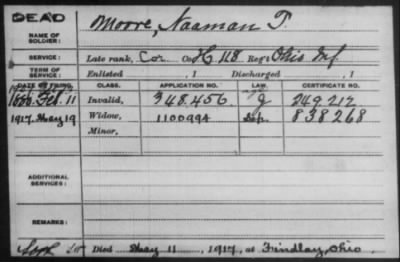 DEAD
NAME OF SOLDIER: Moore, Naaman T.
SERVICE: Late rank, Cor. Co. H 118 Reg't Ohio Inf
TERM OF SERVICE: Enlisted , 1 Discharged , 1
DATE OF FILING. CLASS. APPLICATION NO. LAW. CERTIFICATE NO.
Feb. 11 Invalid, 348.456. 249.212
1917. May 19 Widow, 1100994 838268
Minor,
ADDITIONAL SERVICES:
REMARKS:
Died May 11, 1917, at Findlay, Ohio.